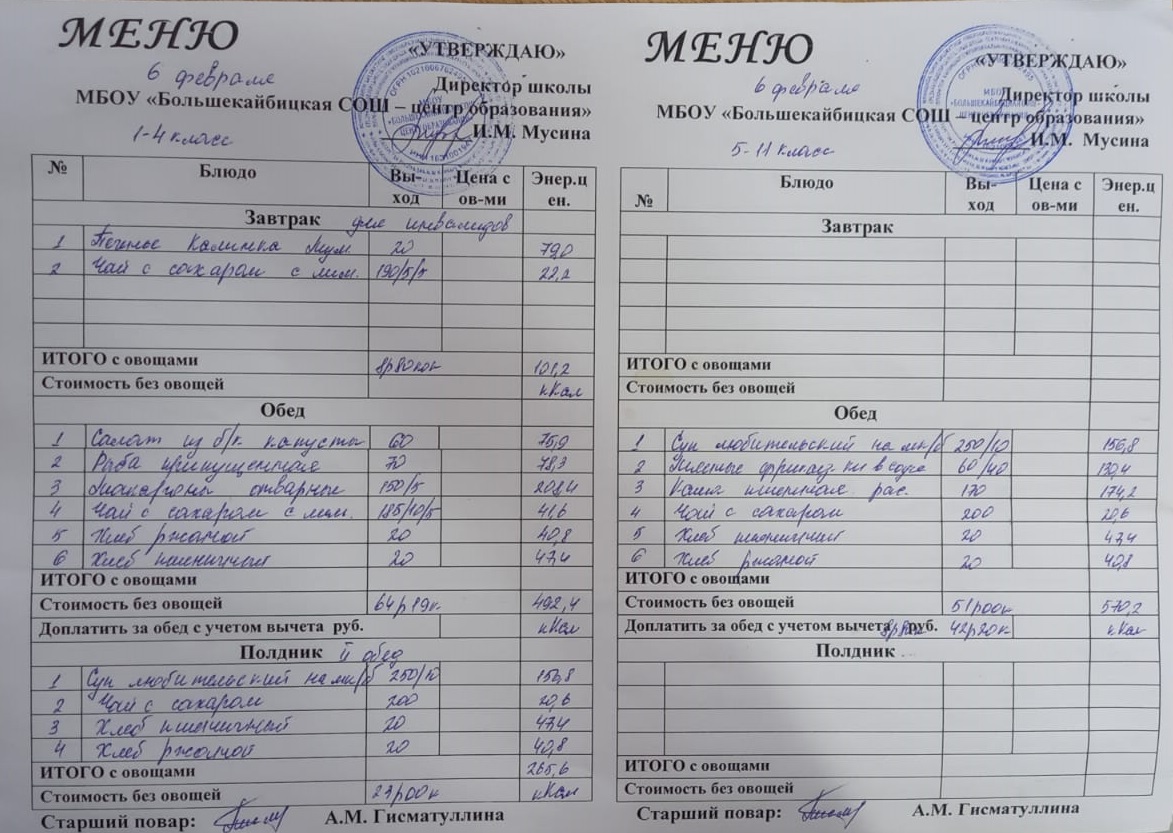 МЕНЮ
6 февраля
«УТВЕРЖДАЮ»
Директор школы
МБОУ «Большекайбицкая СОШ – центр образования»
И.М. Мусина
1-4 класс
№ Блюдо Вы-ход Цена с ов-ми Энер.ц ен.
Завтрак для инвалидов
1 Печенье Калинка 20 79,0
2 Чай с сахаром с лим. 190/5/5 22,2
ИТОГО с овощами 8р80коп 101,2
Стоимость без овощей кКал
Обед
1 Салат из б/к капусты 60 75,9
2 Рыба припущенная 70 78,3
3 Макароны отварные 150/5 208,4
4 Чай с сахаром с лим. 185/10/5 41,6
5 Хлеб ржаной 20 40,8
6 Хлеб пшеничный 20 47,4
ИТОГО с овощами
Стоимость без овощей 64р19к. 492,4
Доплатить за обед с учетом вычета руб. кКал
Полдник II обед
1 Суп любительский на мк/б 250/10 156,8
2 Чай с сахаром 200 20,6
3 Хлеб пшеничный 20 47,4
4 Хлеб ржаной 20 40,8
ИТОГО с овощами 265,6
Стоимость без овощей 23р00к кКал
Старший повар: А.М. Гисматуллина
МЕНЮ
6 февраля
«УТВЕРЖДАЮ»
Директор школы
МБОУ «Большекайбицкая СОШ – центр образования»
И.М. Мусина
5-11 класс
№ Блюдо Вы-ход Цена с ов-ми Энер.ц ен.
Завтрак
ИТОГО с овощами
Стоимость без овощей
Обед
1 Суп любительский на мк/б 250/10 156,8
2 в соусе 60/40 130,4
3 Каша пшенная рас. 170 174,2
4 Чай с сахаром 200 20,6
5 Хлеб пшеничный 20 47,4
6 Хлеб ржаной 20 40,8
ИТОГО с овощами
Стоимость без овощей 51р00к 570,2
Доплатить за обед с учетом вычета руб. 42р20к кКал
Полдник
ИТОГО с овощами
Стоимость без овощей
Старший повар: А.М. Гисматуллина